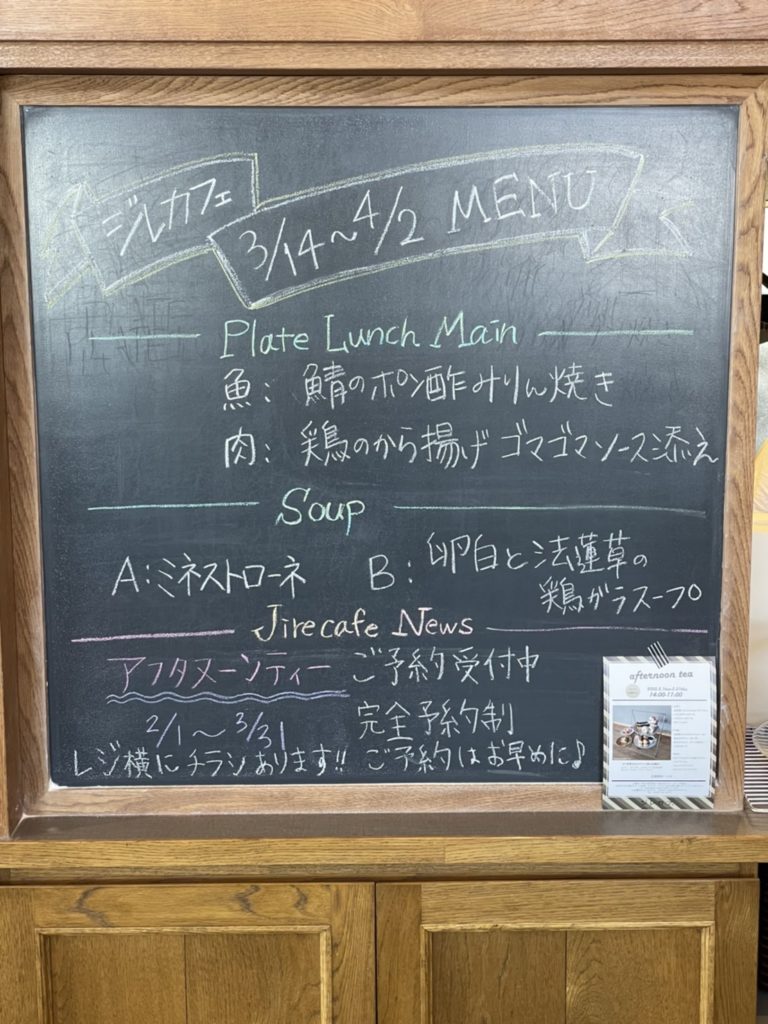 ジルカフェ
3/14～4/2 MENU
Plate Lunch Main
魚: 鯖のポン酢みりん焼き
肉: 鶏のから揚げ ゴマゴマソース添え
Soup
A:ミネストローネ B: 卵白と法蓮草の
鶏がらスープ
Jirecafe News
アフタヌーンティー ご予約受付中
2/1～3/31 完全予約制
レジ横にチラシあります!! ご予約はお早めに♪
afternoon tea
14:00-17:00